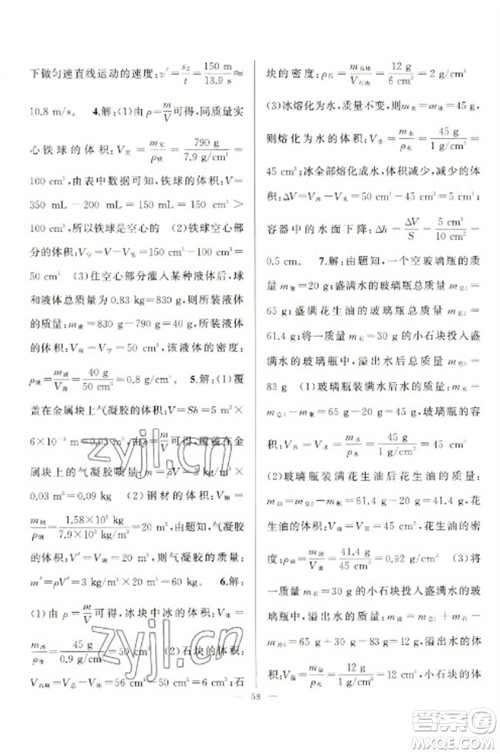 下做匀速直线运动的速度：v′=s₂/t=150 m/13.9 s≈
10.8 m/s。 4.解：(1)由ρ=m/V可得，同质量实
心铁球的体积：V实=m/ρ铁=790 g/7.9 g/cm³=
100 cm³，由表中数据可知，铁球的体积：V=
350 mL－200 mL=150 mL=150 cm³＞
100 cm³，所以铁球是空心的 (2)铁球空心
部分的体积：V空=V－V实=150 cm³－100 cm³=
50 cm³ (3)往空心部分灌入某种液体后，球和
液体总质量为0.83 kg=830 g，则所装液体
的质量：m液=m总－m球=830 g－790 g=
40 g，V液=V空=50 cm³，该液体的密度：
ρ液=m液/V液=40 g/50 cm³=0.8 g/cm³ 5.解：(1)覆
盖在金属块上气凝胶的体积：V=Sh=5 m²×
6×10⁻³ m=0.03 m³，由ρ=m/V可得，覆盖在金
属块上的气凝胶质量：m=ρV=3 kg/m³×
0.03 m³=0.09 kg (2)钢材的体积：V钢=
m钢/ρ钢=1.58×10⁵ kg/7.9×10³ kg/m³=20 m³，由题知，气凝胶
的体积：V′=V钢=20 m³，则气凝胶的质量：
m′=ρV′=3 kg/m³×20 m³=60 kg。 6.解：
(1)由ρ=m/V可得，冰块中冰的体积：V冰=
m冰/ρ冰=45 g/0.9 g/cm³=50 cm³ (2)石块的体积：
V石块=V总－V冰=56 cm³－50 cm³=6 cm³；石
块的密度：ρ石块=m石块/V石块=12 g/6 cm³=2 g/cm³
(3)冰熔化为水，质量不变，则m水=m冰=45 g，
则熔化为水的体积：V水=m水/ρ水=45 g/1 g/cm³=
45 cm³，冰全部熔化成水，体积减小，减小的体
积：ΔV=V冰－V水=50 cm³－45 cm³=5 cm³；
容器中的水面下降：Δh=ΔV/S=5 cm³/10 cm²=
0.5 cm。 7.解：由题知，一个空玻璃瓶的质
量：m瓶=20 g；盛满水的玻璃瓶的总质量：
m总1=65 g；盛满花生油的玻璃瓶的总质量：m总2=
61.4 g；将质量m石=45 g的小石块投入盛
满水的玻璃瓶中，溢出水后的总质量：m总3=
83 g (1)玻璃瓶装满水后水的质量：m水=
m总1－m瓶=65 g－20 g=45 g，玻璃瓶的
容积：V容=V水=m水/ρ水=45 g/1 g/cm³=45 cm³
(2)玻璃瓶装满花生油后花生油的质量：
m油=m总2－m瓶=61.4 g－20 g=41.4 g，
花生油的体积：V油=V容=45 cm³，花生油的密
度：ρ油=m油/V油=41.4 g/45 cm³=0.92 g/cm³ (3)将
一质量为45 g的小石块投入盛满水的玻
璃瓶中，溢出水的质量：m溢=m总1+m石－
m总3=65 g+45 g－83 g=27 g，小石块的体
积等于溢出水的体积，小石块的体积：V石=
58
zyjl.cn
答案圈
MXQE.COM